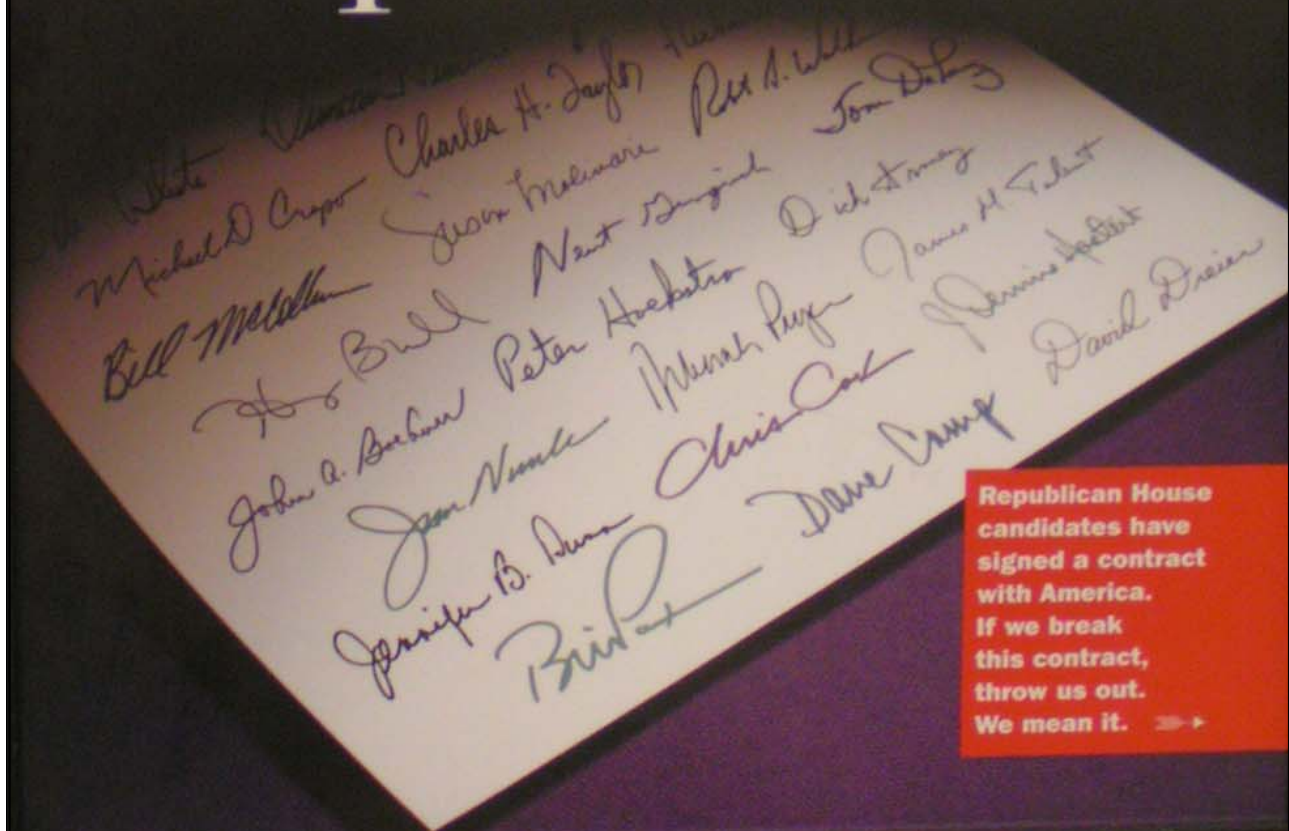 White
Charles H. Taylor
Michael D Crapo
Susan Molinari
Robt S. Walker
Tom DeLay
Bill McCollum
Newt Gingrich
Dick Armey
John A. Boehner
Peter Hoekstra
James M Talent
Jim Nussle
Deborah Pryce
J Dennis Hastert
Jennifer B. Dunn
Chris Cox
David Dreier
Bill Paxon
Dave Camp
Republican House
candidates have
signed a contract
with America.
If we break
this contract,
throw us out.
We mean it.